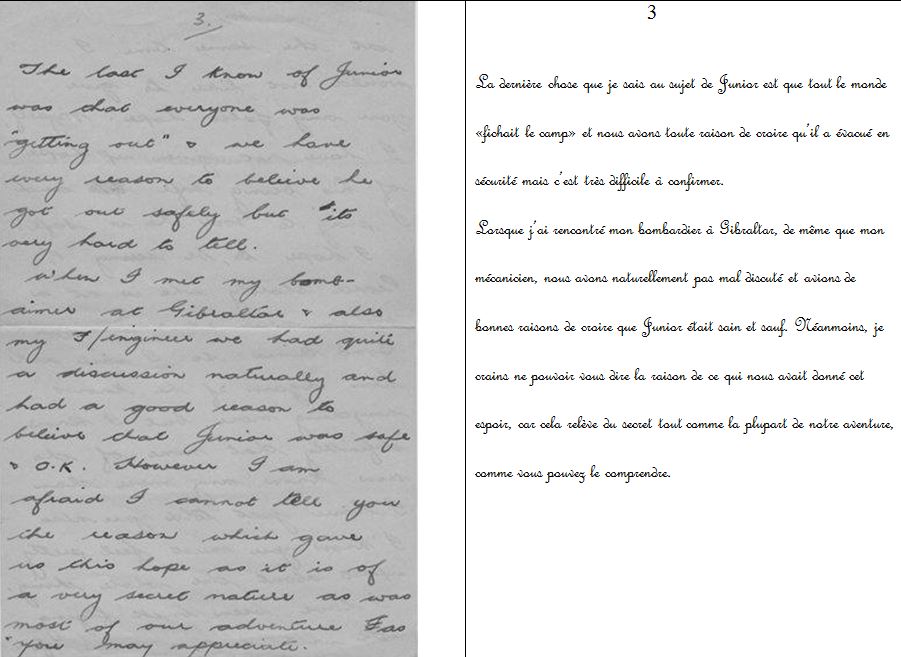 3.
The last I know of Junior
was that everyone was
"getting out" & we have
every reason to believe he
got out safely but its
very hard to tell.
When I met my bomb-
aimer at Gibraltar & also
my F/engineer we had quite
a discussion naturally and
had a good reason to
beleive that Junior was safe
& O.K. However I am
afraid I cannot tell you
the reason which gave
us this hope as it is of
a very secret nature as was
most of our adventure as
you may appreciate.
3
La dernière chose que je sais au sujet de Junior est que tout le monde
«fichait le camp» et nous avons toute raison de croire qu'il a évacué en
sécurité mais c'est très difficile à confirmer.
Lorsque j'ai rencontré mon bombardier à Gibraltar, de même que mon
mécanicien, nous avons naturellement pas mal discuté et avions de
bonnes raisons de croire que Junior était sain et sauf. Néanmoins, je
crains ne pouvoir vous dire la raison de ce qui nous avait donné cet
espoir, car cela relève du secret tout comme la plupart de notre aventure,
comme vous pouvez le comprendre.